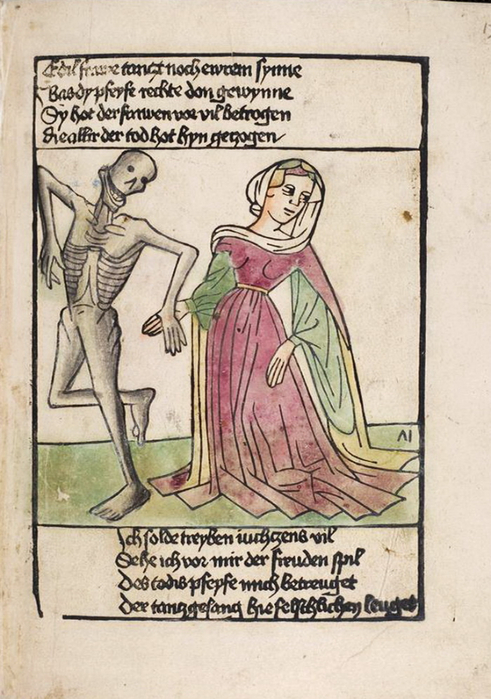 Edil frawe tanczt noch ewrem synne
Bas dy pfeyfe rechte don gewynne
Sy hot der frawen vor vil betrogen
Die allir der tod hot hyn geczogen
VI
Ich solde treyben iuchczens vil
Sehe ich vor mir der freuden spil
Des todis pfeyfe mich betreuget
Der tantzgesang hie felschlichen leuget